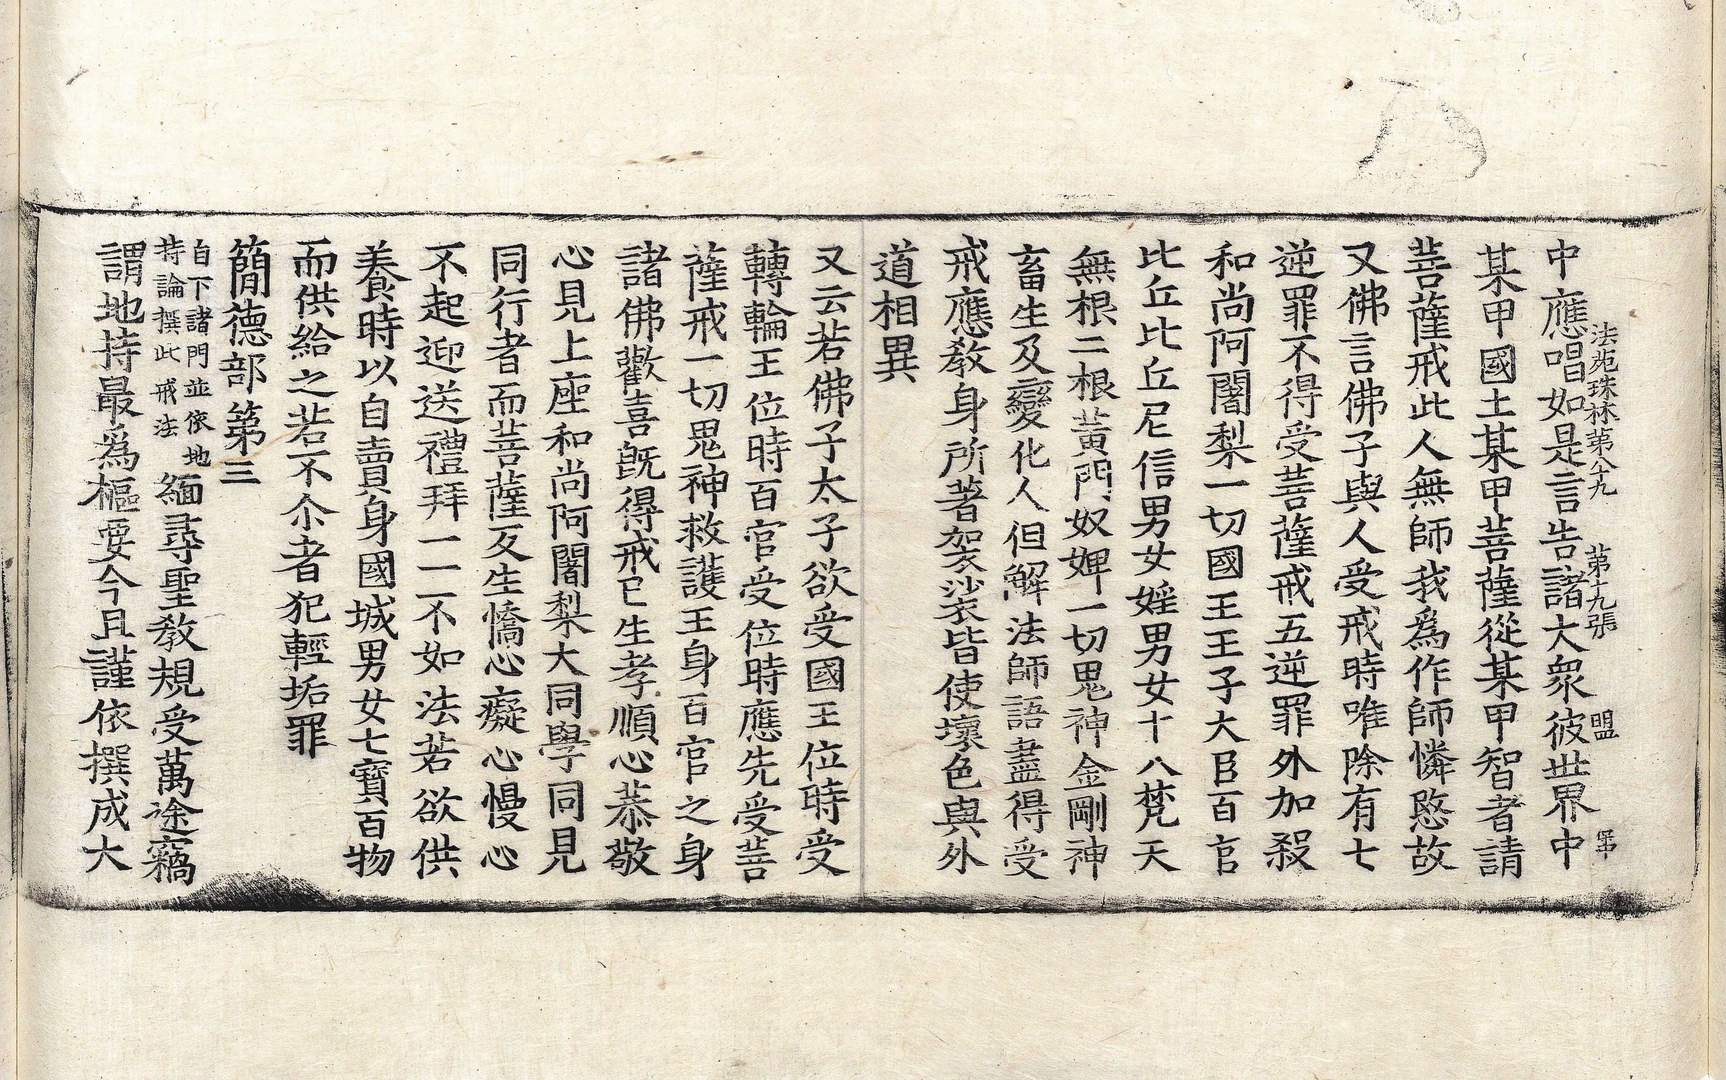 法苑珠林第八十九 第十九張 盟
中應唱如是言告諸大衆彼世界中
某甲國土某甲菩薩從某甲智者請
菩薩戒此人無師我爲作師憐愍故
又佛言佛子與人受戒時唯除有七
逆罪不得受菩薩戒五逆罪外加殺
和尚阿闍梨一切國王王子大臣百官
比丘比丘尼信男女婬男女十八梵天
無根二根黃門奴婢一切鬼神金剛神
畜生及變化人但解法師語盡得受
戒應教身所著袈裟皆使壞色與外
道相異
又云若佛子太子欲受國王位時受
轉輪王位時百官受位時應先受菩
薩戒一切鬼神救護王身百官之身
諸佛歡喜旣得戒已生孝順心恭敬
心見上座和尚阿闍梨大同學同見
同行者而菩薩反生憍心癡心慢心
不起迎送禮拜一一不如法若欲供
養時以自賣身國城男女七寶百物
而供給之若不尒者犯輕垢罪
簡德部第三
自下諸門並依地
持論撰此戒法
緬尋聖教規受萬途竊
謂地持最爲樞要今且謹依撰成大